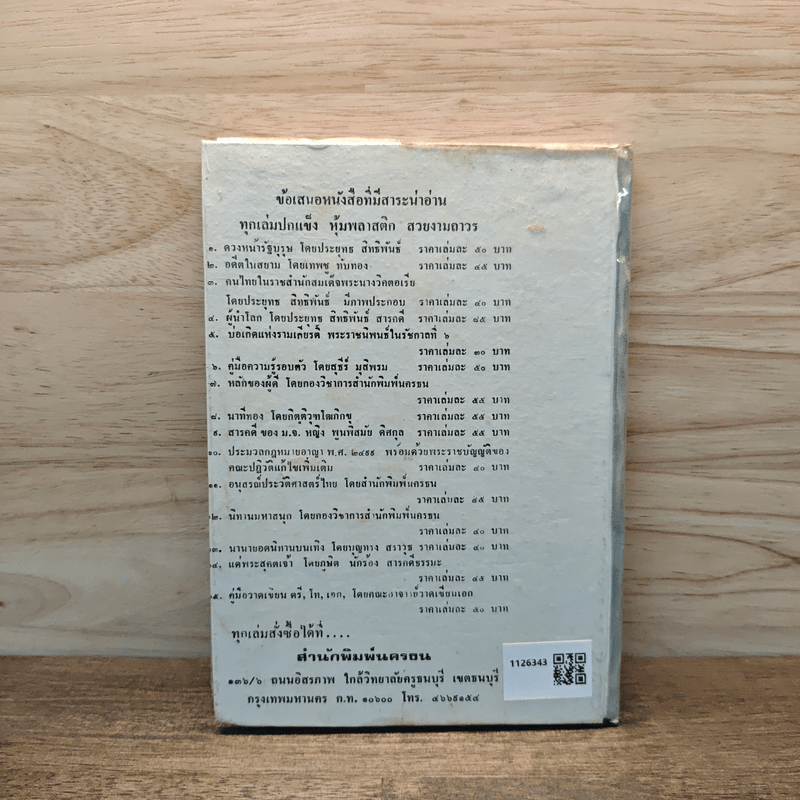 ข้อเสนอหนังสือที่มีสาระน่าอ่าน
ทุกเล่มปกแข็ง หุ้มพลาสติก สวยงามถาวร
๑. ดวงหน้ารัฐบุรุษ โดยประยุทธ สิทธิพันธ์ ราคาเล่มละ ๕๐ บาท
๒. อดีตในสยาม โดยเทพชู ทับทอง ราคาเล่มละ ๔๕ บาท
๓. คนไทยในราชสำนักสมเด็จพระนางวิคตอเรีย
โดยประยุทธ สิทธิพันธ์ มีภาพประกอบ ราคาเล่มละ ๔๐ บาท
๔. ผู้นำโลก โดยประยุทธ สิทธิพันธ์ สารคดี ราคาเล่มละ ๘๕ บาท
๕. บ่อเกิดแห่งรามเกียรติ์ พระราชนิพนธ์ในรัชกาลที่ ๖
ราคาเล่มละ ๓๐ บาท
๖. คู่มือความรู้รอบตัว โดยสุธีร์ มุสิพรม ราคาเล่มละ ๕๐ บาท
๗. หลักของผู้ดี โดยกองวิชาการสำนักพิมพ์นครธน
ราคาเล่มละ ๕๕ บาท
๘. นาทีทอง โดยกิตฺติวุฑฺโฒภิกขุ ราคาเล่มละ ๕๕ บาท
๙. สารคดี ของ ม.จ. หญิง พูนพิสมัย ดิศกุล ราคาเล่มละ ๕๕ บาท
๑๐. ประมวลกฎหมายอาญา พ.ศ. ๒๔๙๙ พร้อมด้วยพระราชบัญญัติของ
คณะปฏิวัติแก้ไขเพิ่มเติม ราคาเล่มละ ๔๐ บาท
๑๑. อนุสรณ์ประวัติศาสตร์ไทย โดยสำนักพิมพ์นครธน
ราคาเล่มละ ๔๕ บาท
๒. นิทานมหาสนุก โดยกองวิชาการสำนักพิมพ์นครธน
ราคาเล่มละ ๔๐ บาท
๓. นานายอดนิทานบนเทิง โดยบุญทรง สราวุธ ราคาเล่มละ ๔๐ บาท
๔. แด่พระสุคตเจ้า โดยภูษิต นักร้อง สารคดีธรรมะ
ราคาเล่มละ ๔๕ บาท
๕. คู่มือวาดเขียน ตรี, โท, เอก, โดยคณะอาจารย์วาดเขียนเอก
ราคาเล่มละ ๕๐ บาท
ทุกเล่มสั่งซื้อได้ที่....
สำนักพิมพ์นครธน
๑๓๖/๖ ถนนอิสรภาพ ใกล้วิทยาลัยครูธนบุรี เขตธนบุรี
กรุงเทพมหานคร ก.ท. ๑๐๖๐๐ โทร. ๔๖๖๙๑๕๔
1126343